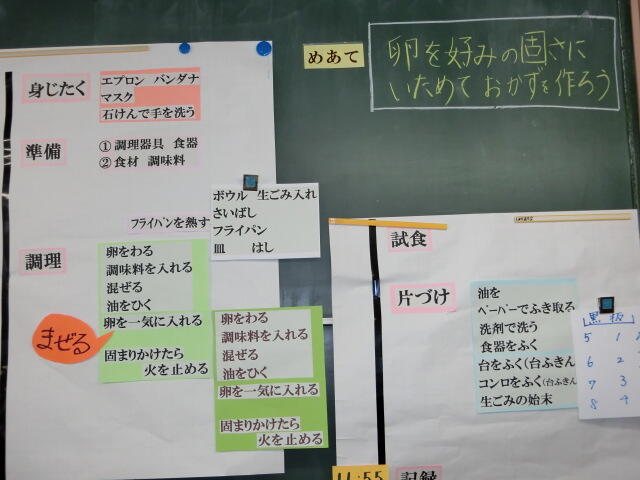 めあて
卵を好みの固さに
いためて おかずを作ろう
身じたく
エプロン バンダナ
マスク
石けんで手を洗う
準備
①調理器具 食器
②食材 調味料
ボウル 生ごみ入れ
さいばし
フライパン
皿 はし
フライパンを熱す
調理
卵をわる
調味料を入れる
混ぜる
油をひく
卵を一気に入れる
まぜる
固まりかけたら
火を止める
卵をわる
調味料を入れる
混ぜる
油をひく
卵を一気に入れる
固まりかけたら
火を止める
試食
片づけ
油を
ペーパーでふき取る
洗剤で洗う
食器をふく
台をふく(台ふきん
コンロをふく(台ふきん
生ごみの始末
黒板
5 1
6 2
7 3
8 4
11:55
記録